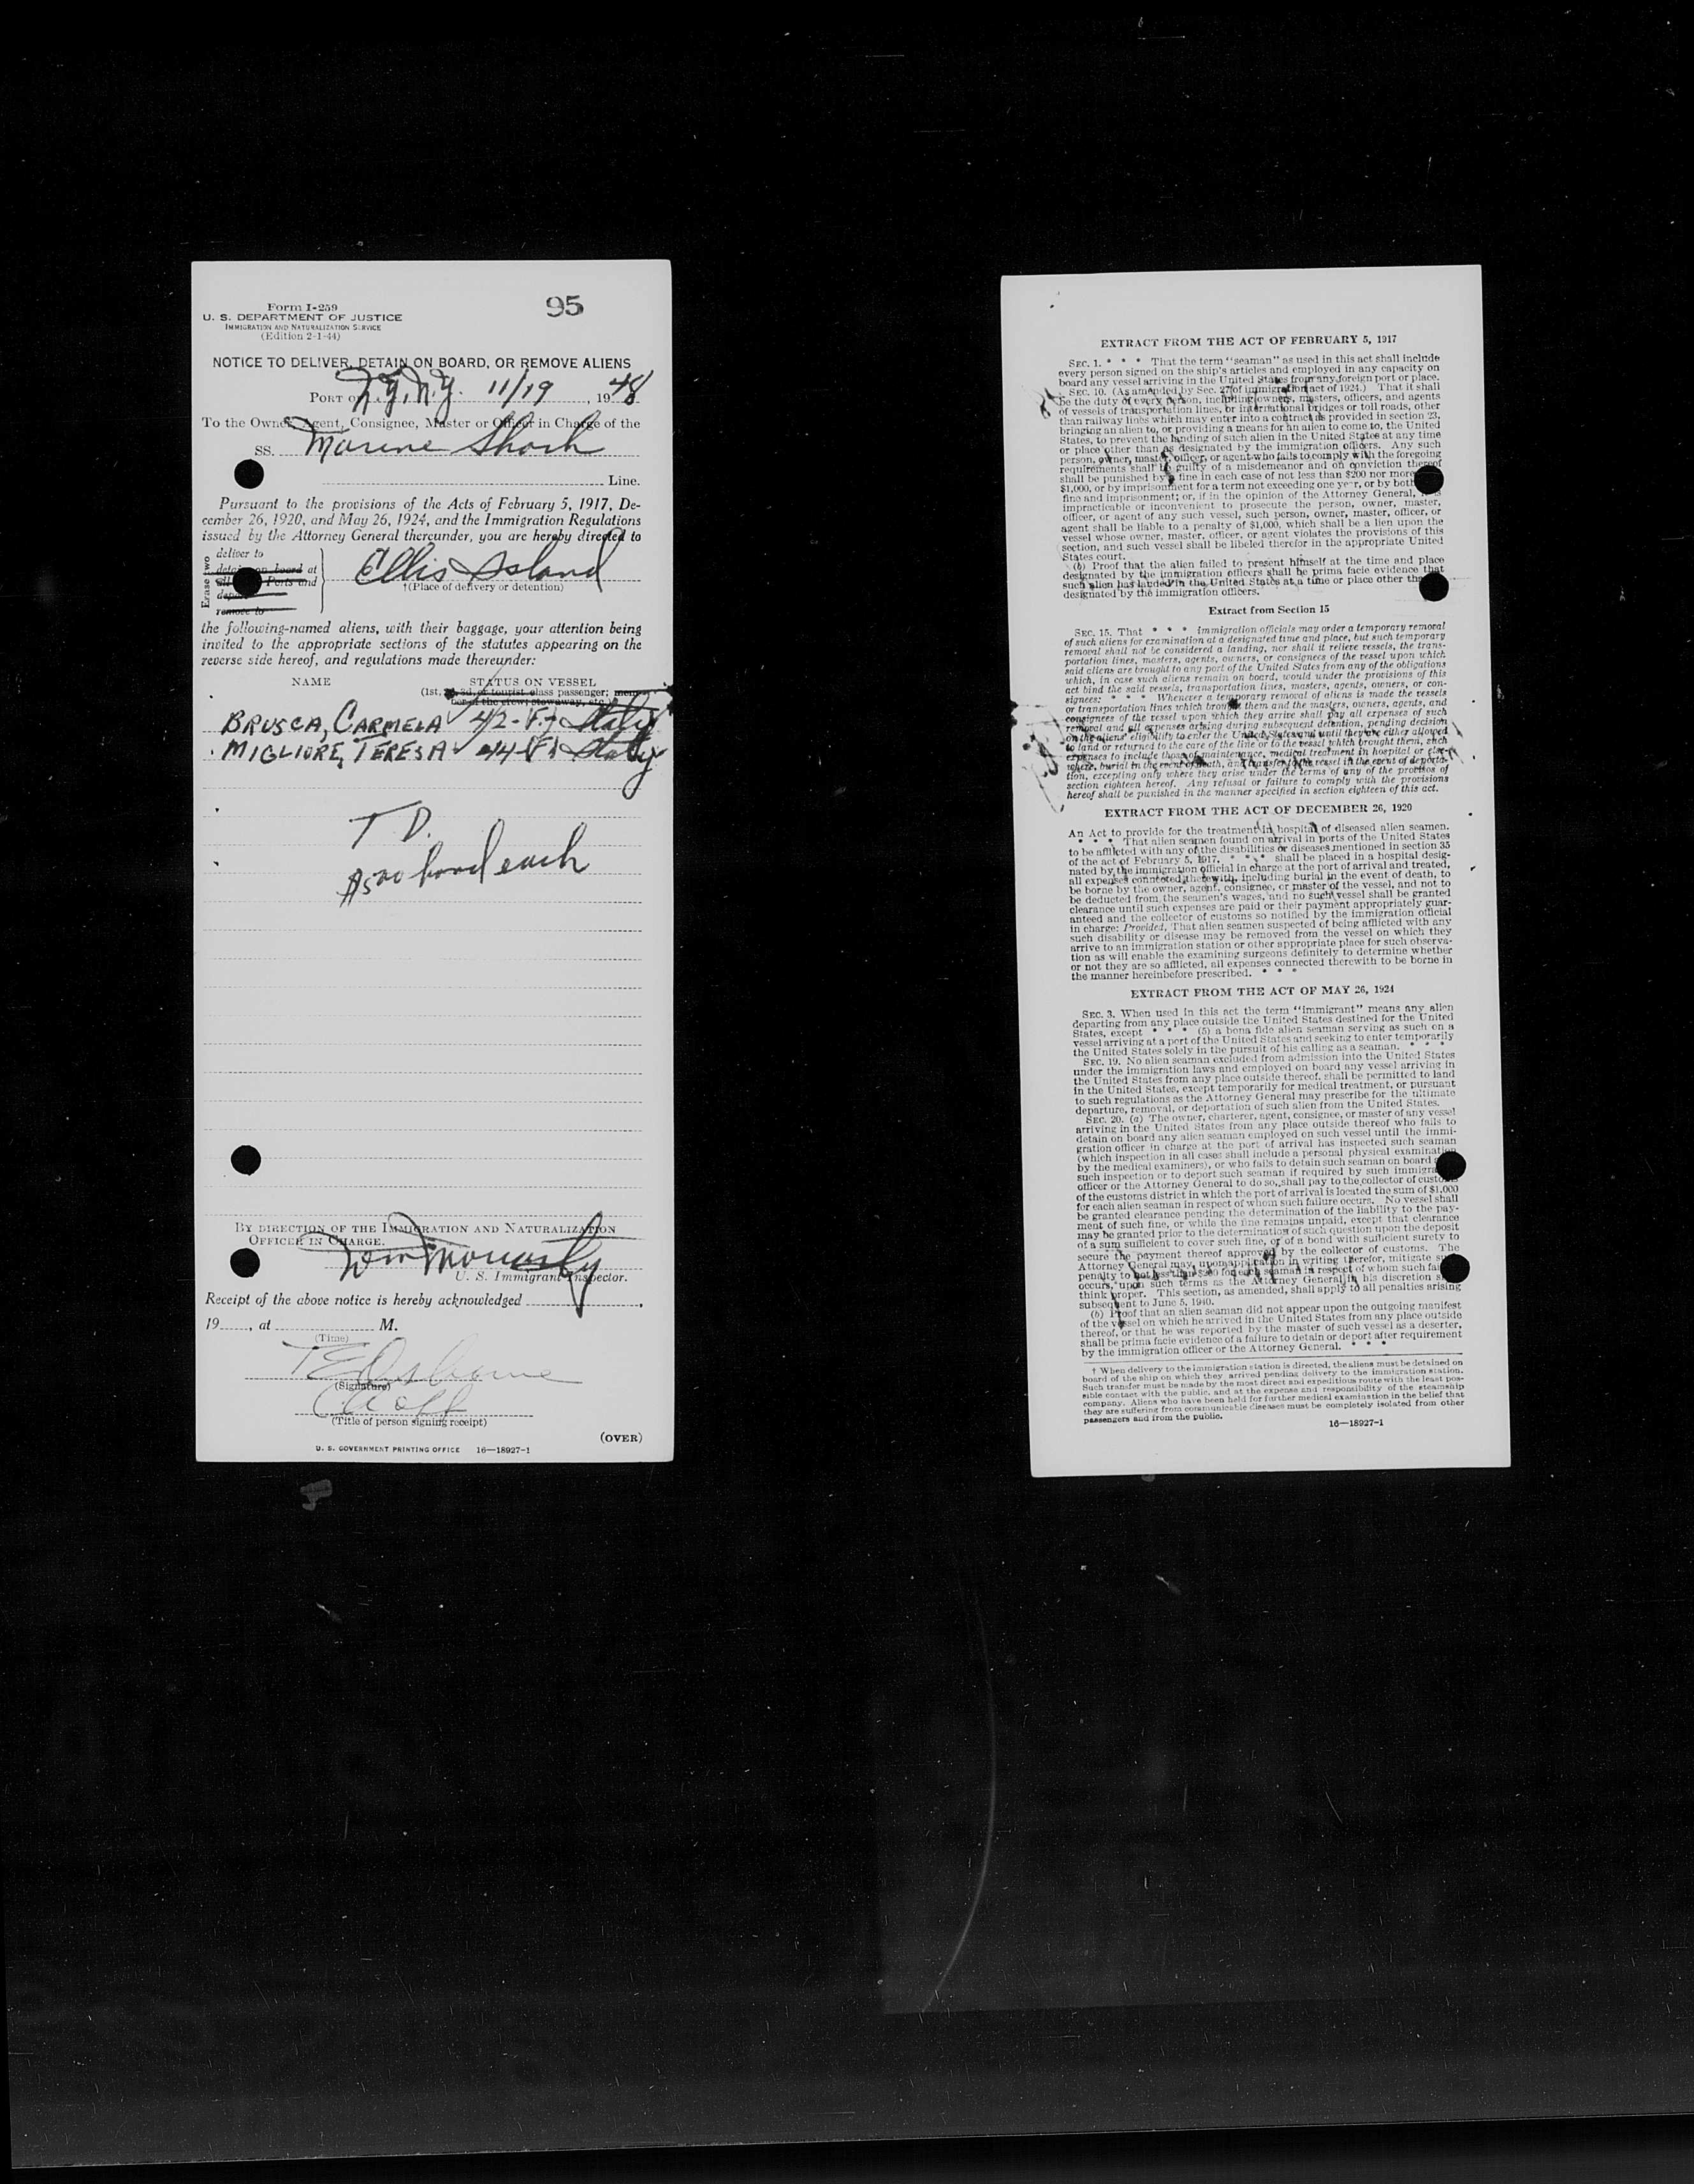 95
Form I-259
U. S. DEPARTMENT OF JUSTICE
IMMIGRATION AND NATURALIZATION SERVICE
(Edition 2-1-44)
NOTICE TO DELIVER, DETAIN ON BOARD, OR REMOVE ALIENS
PORT OF N.Y., N.Y. 11/19, 1948
To the Owner, Agent, Consignee, Master or Officer in Charge of the
SS. Marine Shark
Line.
Pursuant to the provisions of the Acts of February 5, 1917, De-
cember 26, 1920, and May 26, 1924, and the Immigration Regulations
issued by the Attorney General thereunder, you are hereby directed to
Erase two
deliver to
detain on board at
Ports and
remove to
Ellis Island
†(Place of delivery or detention)
the following-named aliens, with their baggage, your attention being
invited to the appropriate sections of the statutes appearing on the
reverse side hereof, and regulations made thereunder:
NAME STATUS ON VESSEL
(1st, 2d, 3d, or tourist class passenger; mem-
ber of the crew; stowaway, etc.)
BRUSCA, CARMELA 42-F. Italy
MIGLIORE, TERESA 44-F. Italy
T D.
$500 bond each
BY DIRECTION OF THE IMMIGRATION AND NATURALIZATION
OFFICER IN CHARGE.
U. S. Immigrant Inspector.
Receipt of the above notice is hereby acknowledged
19, at M.
(Time)
T E Osborne
(Signature)
(Title of person signing receipt)
(OVER)
U. S. GOVERNMENT PRINTING OFFICE 16—18927-1
EXTRACT FROM THE ACT OF FEBRUARY 5, 1917
SEC. 1. * * * That the term "seaman" as used in this act shall include
every person signed on the ship's articles and employed in any capacity on
board any vessel arriving in the United States from any foreign port or place.
SEC. 10. (As amended by Sec. 27 of immigration act of 1924.) That it shall
be the duty of every person, including owners, masters, officers, and agents
of vessels of transportation lines, or international bridges or toll roads, other
than railway lines which may enter into a contract as provided in section 23,
bringing an alien to, or providing a means for an alien to come to, the United
States, to prevent the landing of such alien in the United States at any time
or place other than as designated by the immigration officers. Any such
person, owner, master, officer, or agent who fails to comply with the foregoing
requirements shall be guilty of a misdemeanor and on conviction thereof
shall be punished by a fine in each case of not less than $200 nor more
$1,000, or by imprisonment for a term not exceeding one year, or by both
fine and imprisonment; or, if in the opinion of the Attorney General,
impracticable or inconvenient to prosecute the person, owner, master,
officer, or agent of any such vessel, such person, owner, master, officer, or
agent shall be liable to a penalty of $1,000, which shall be a lien upon the
vessel whose owner, master, officer, or agent violates the provisions of this
section, and such vessel shall be libeled therefor in the appropriate United
States court.
(b) Proof that the alien failed to present himself at the time and place
designated by the immigration officers shall be prima facie evidence that
such alien has landed in the United States at a time or place other
designated by the immigration officers.
Extract from Section 15
SEC. 15. That * * * immigration officials may order a temporary removal
of such aliens for examination at a designated time and place, but such temporary
removal shall not be considered a landing, nor shall it relieve vessels, the trans-
portation lines, masters, agents, owners, or consignees of the vessel upon which
said aliens are brought to any port of the United States from any of the obligations
which, in case such aliens remain on board, would under the provisions of this
act bind the said vessels, transportation lines, masters, agents, owners, or con-
signees: * * * Whenever a temporary removal of aliens is made the vessels
or transportation lines which brought them and the masters, owners, agents, and
consignees of the vessel upon which they arrive shall pay all expenses of such
removal and all expenses arising during subsequent detention, pending decision
on the aliens' eligibility to enter the United States and until they are either allowed
to land or returned to the care of the line or to the vessel which brought them, such
expenses to include those of maintenance, medical treatment in hospital or else-
where, burial in the event of death, and transfer to the vessel in the event of deporta-
tion, excepting only where they arise under the terms of any of the provisos of
section eighteen hereof. Any refusal or failure to comply with the provisions
hereof shall be punished in the manner specified in section eighteen of this act.
EXTRACT FROM THE ACT OF DECEMBER 26, 1920
An Act to provide for the treatment in hospital of diseased alien seamen.
* * * That alien seamen found on arrival in ports of the United States
to be afflicted with any of the disabilities or diseases mentioned in section 35
of the act of February 5, 1917, * * * shall be placed in a hospital desig-
nated by the immigration official in charge at the port of arrival and treated,
all expenses connected therewith, including burial in the event of death, to
be borne by the owner, agent, consignee, or master of the vessel, and not to
be deducted from the seamen's wages, and no such vessel shall be granted
clearance until such expenses are paid or their payment appropriately guar-
anteed and the collector of customs so notified by the immigration official
in charge: Provided, That alien seamen suspected of being afflicted with any
such disability or disease may be removed from the vessel on which they
arrive to an immigration station or other appropriate place for such observa-
tion as will enable the examining surgeons definitely to determine whether
or not they are so afflicted, all expenses connected therewith to be borne in
the manner hereinbefore prescribed. * * *
EXTRACT FROM THE ACT OF MAY 26, 1924
SEC. 3. When used in this act the term "immigrant" means any alien
departing from any place outside the United States destined for the United
States, except * * * (5) a bona fide alien seaman serving as such on a
vessel arriving at a port of the United States and seeking to enter temporarily
the United States solely in the pursuit of his calling as a seaman. * * *
SEC. 19. No alien seaman excluded from admission into the United States
under the immigration laws and employed on board any vessel arriving in
the United States from any place outside thereof, shall be permitted to land
in the United States, except temporarily for medical treatment, or pursuant
to such regulations as the Attorney General may prescribe for the ultimate
departure, removal, or deportation of such alien from the United States.
SEC. 20. (a) The owner, charterer, agent, consignee, or master of any vessel
arriving in the United States from any place outside thereof who fails to
detain on board any alien seaman employed on such vessel until the immi-
gration officer in charge at the port of arrival has inspected such seaman
(which inspection in all cases shall include a personal physical examination
by the medical examiners), or who fails to detain such seaman on board
such inspection or to deport such seaman if required by such
officer or the Attorney General to do so, shall pay to the collector of customs
of the customs district in which the port of arrival is located the sum of $1,000
for each alien seaman in respect of whom such failure occurs. No vessel shall
be granted clearance pending the determination of the liability to the pay-
ment of such fine, or while the fine remains unpaid, except that clearance
may be granted prior to the determination of such question upon the deposit
of a sum sufficient to cover such fine, or of a bond with sufficient surety to
secure the payment thereof approved by the collector of customs. The
Attorney General may, upon application in writing therefor, mitigate
penalty to not less than $200 for each seaman in respect of whom such
occurs, upon such terms as the Attorney General in his discretion
think proper. This section, as amended, shall apply to all penalties arising
subsequent to June 5, 1940.
(b) Proof that an alien seaman did not appear upon the outgoing manifest
of the vessel on which he arrived in the United States from any place outside
thereof, or that he was reported by the master of such vessel as a deserter,
shall be prima facie evidence of a failure to detain or deport after requirement
by the immigration officer or the Attorney General. * * *
† When delivery to the immigration station is directed, the aliens must be detained on
board of the ship on which they arrived pending delivery to the immigration station.
Such transfer must be made by the most direct and expeditious route with the least pos-
sible contact with the public, and at the expense and responsibility of the steamship
company. Aliens who have been held for further medical examination in the belief that
they are suffering from communicable diseases must be completely isolated from other
passengers and from the public.
16—18927-1